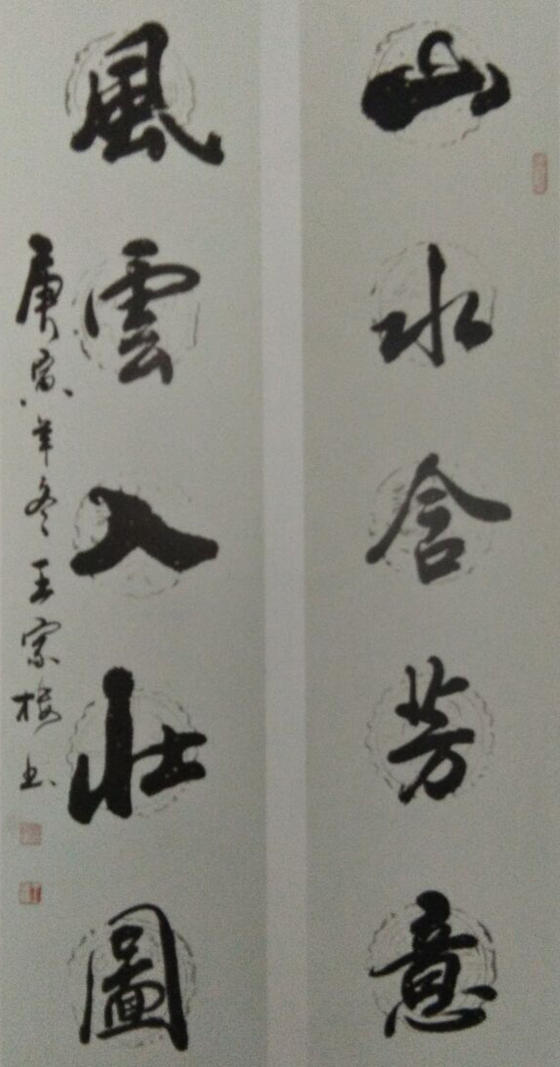 山水含芳意
風雲入壯圖
庚寅年冬王宗樓书